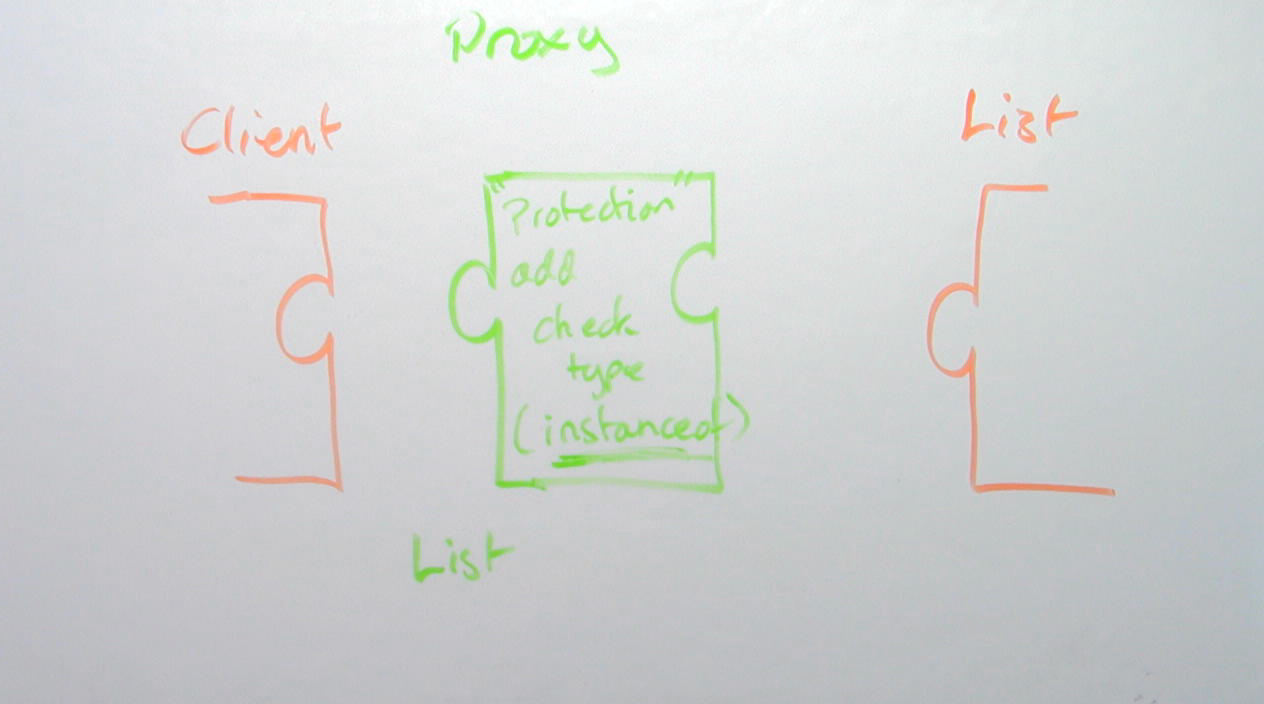 Proxy
Client
List
"Protection"
add
check
type
(instanceof)
List